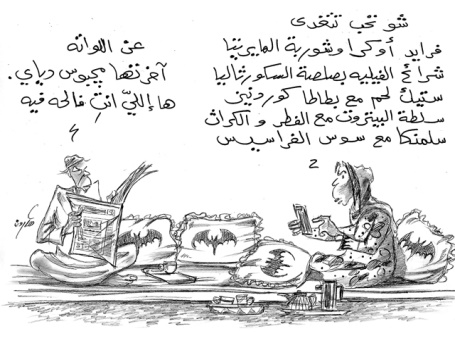 شو تحب تتغدى
فرايد أوكرا وشوربة المايربتا
شرائح الفيليه بصلصة السكورثاليا
ستيك لحم مع بطاطا كوردنين
سلطة البيتروت مع الفطر و الكراث
سلمنكا مع سوس الفراسيس
عن اللواته
آخرتها مچبوس دياي.
ها إللي انتِ فالحه فيه